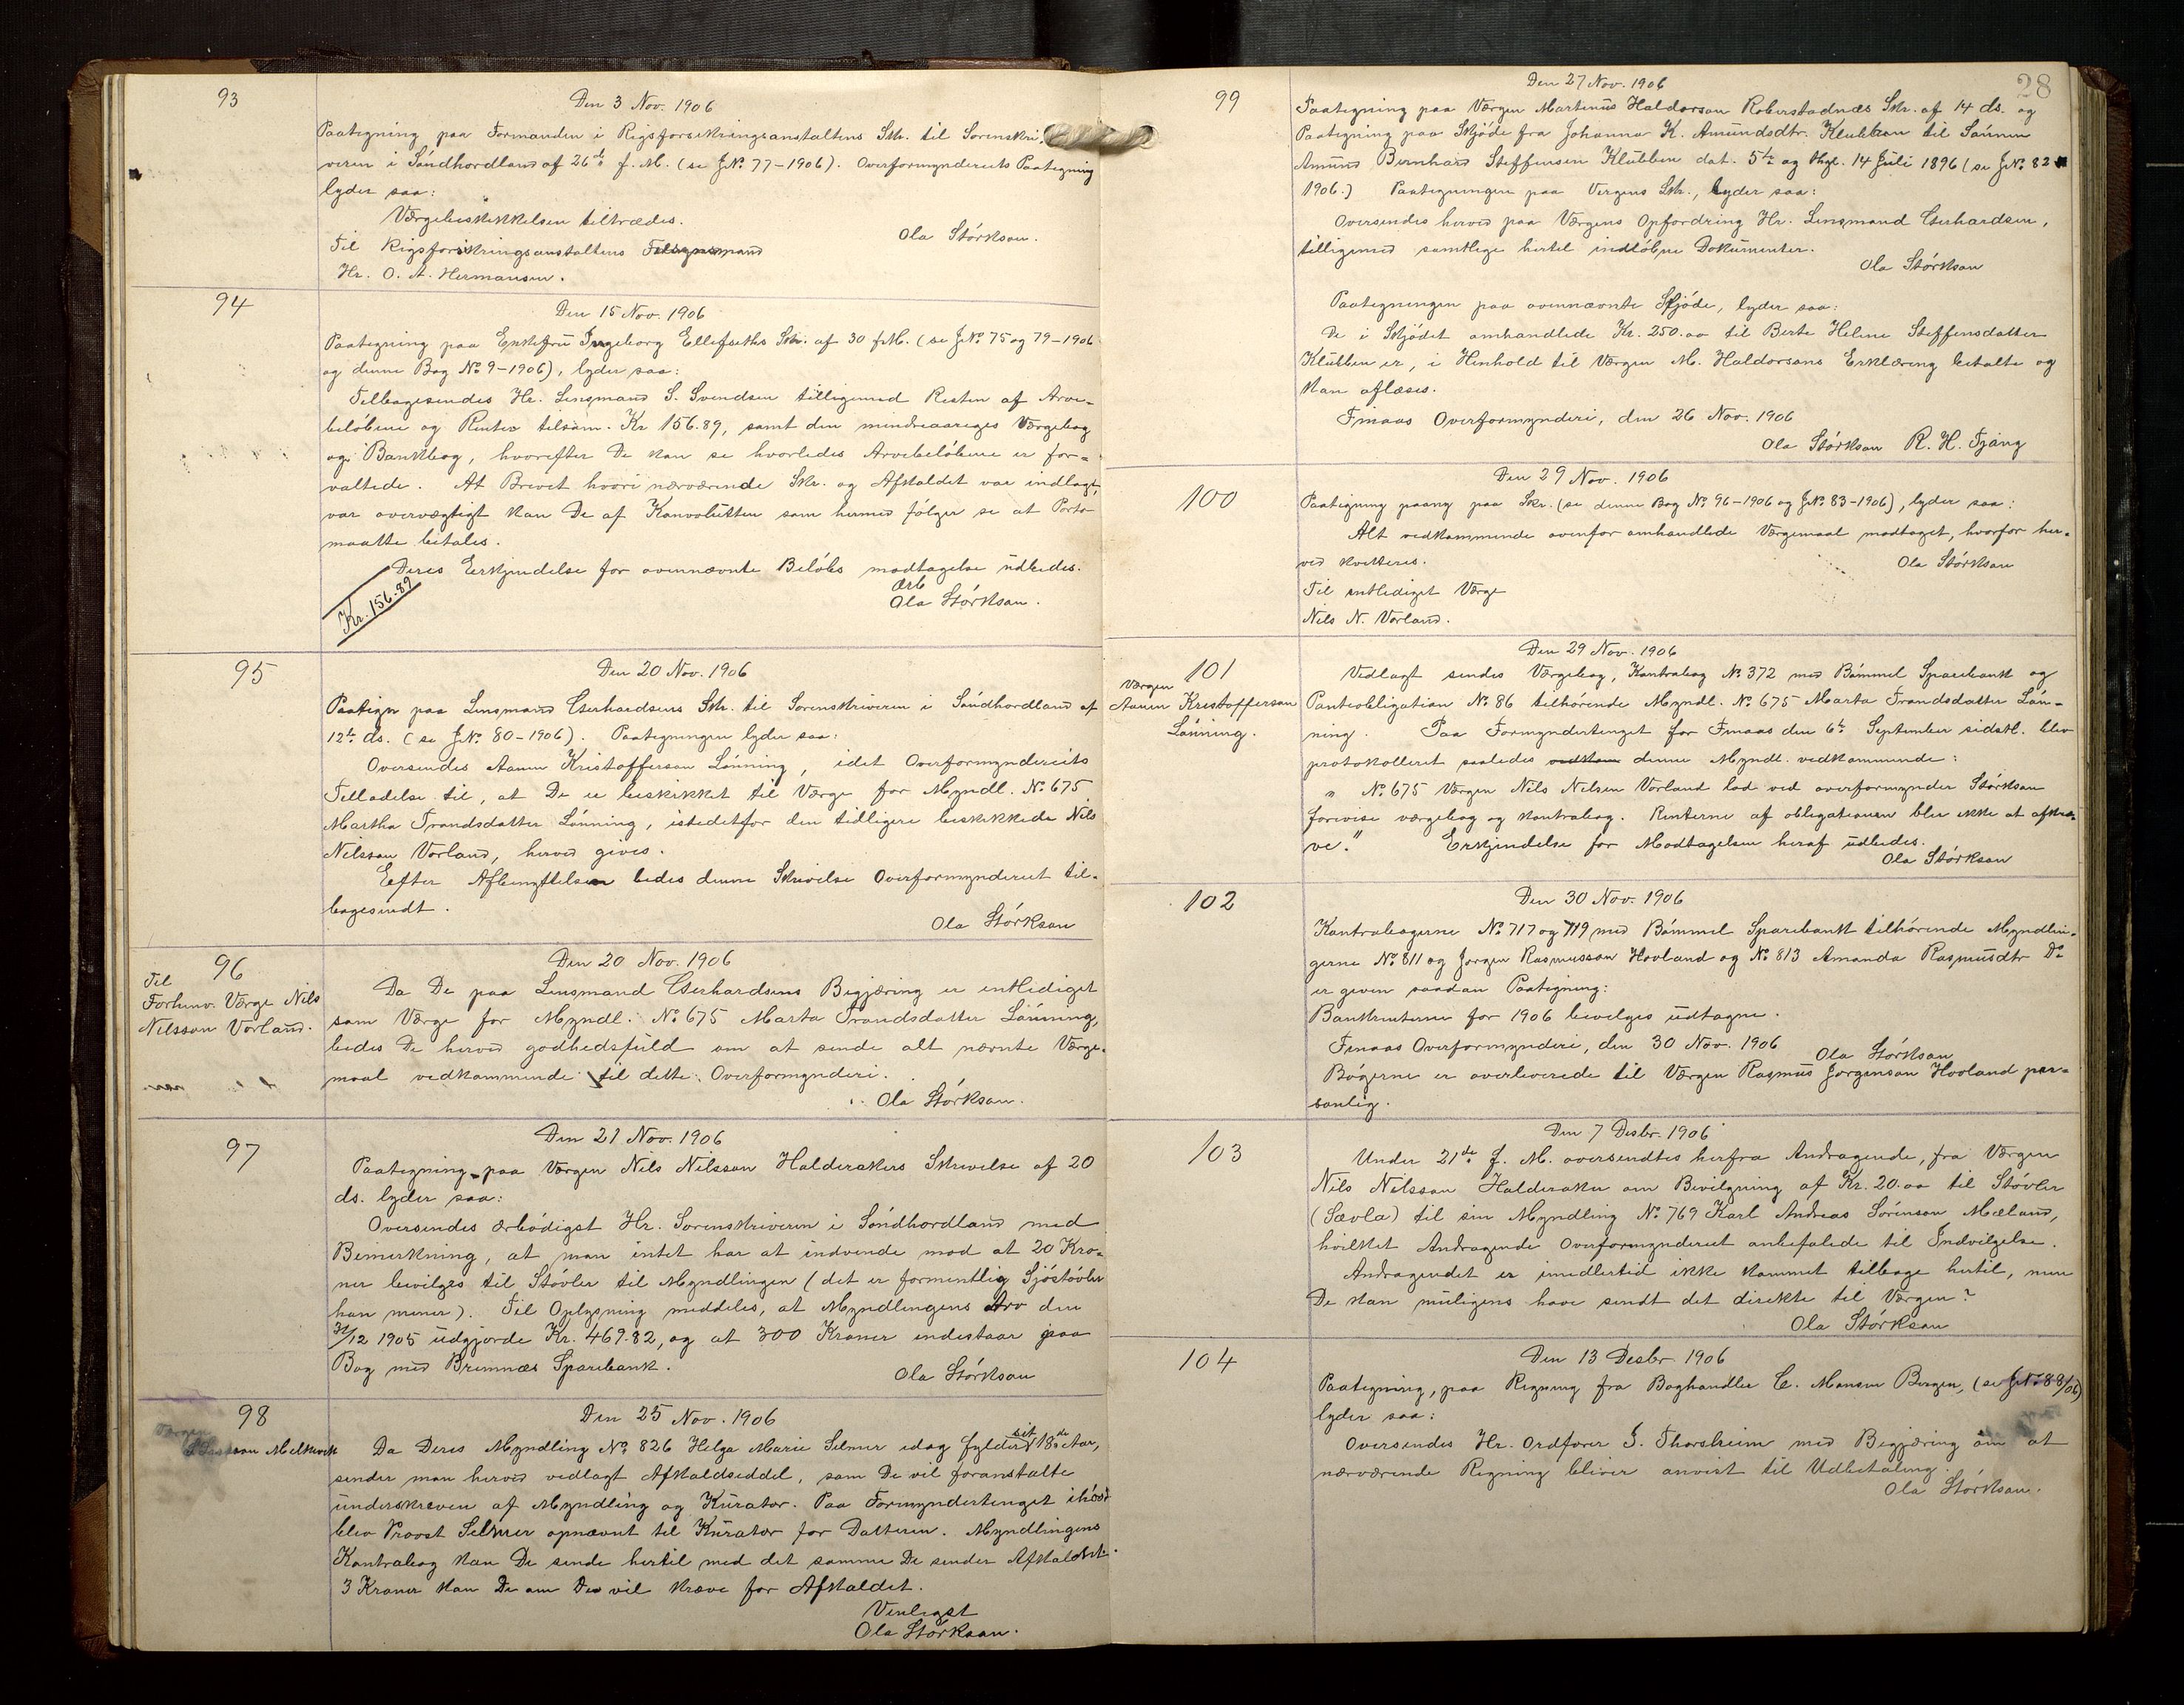 93
Den 3 Nov. 1906
Paategning paa Formanden i Rigsforsikringsanstaltens Skr. til Sorenskri-
veren i Söndhordland af 26de f. M. (se J№ 77-1906). Overformynderiets Paategning
lyder saa:
Værgebeskikkelsen tiltrædes.
Ola Störkson.
Til Rigsforsikringsanstaltens Tilsynsmand
Hr. O. A. Hermansen.
94
Den 15 Nov. 1906
Paategning paa Enkefru Ingeborg Ellefseths Skr. af 30 f.M. (se J№ 75 og 79-1906
og denne Bog № 9-1906), lyder saa:
Tilbagesendes Hr. Lensmand S. Svendsen tilligemed Resten af Arve-
belöbene og Renter tilsam. Kr 156.89, samt den mindreaariges Værgebog
og Bankbog, hvorefter De kan se hvorledes Arvebelöbene er for-
valtede. At Brevet hvori nærværende Skr. og Afkaldet var indlagt,
var overvægtigt kan De af Konvolutten som hermed fölger se at Porto
maatte betales.
Deres Erkjendelse for ovennævnte Belöbs modtagelse udbedes.
Ærb
Ola Störkson.
Kr. 156.89
95
Den 20 Nov. 1906
Paategn paa Lensmand Gerhardsens Skr. til Sorenskriveren i Söndhordland af
12te ds. (se J№. 80-1906). Paategningen lyder saa:
Oversendes Aamun Kristofferson Lönning, idet Overformynderiets
Tilladelse til, at De er beskikket til Værge for Myndl. №675
Martha Trandsdatter Lönning, istedetfor den tidligere beskikkede Nils
Nilsson Vorland, herved gives.
Efter Afbenyttelsen bedes denne Skrivelse Overformynderiet til-
bagesendt.
Ola Störkson
96
Til
Forhenv. Værge Nils
Nilsson Vorland.
Den 20 Nov. 1906
Da De paa Lensmand Gerhardsens Begjæring er entlediget
som Værge for Myndl. № 675 Marta Trandsdatter Lönning,
bedes De herved godhedsfuld om at sende alt nævnte Værge-
maal vedkommende til dette Overformynderi.
Ola Störkson.
97
Den 21 Nov. 1906
Paategning paa Værgen Nils Nilsson Halderakers Skrivelse af 20
ds. lyder saa:
Oversendes ærbödigst Hr. Sorenskriveren i Söndhordland med
Bemerkning, at man intet har at indvende mod at 20 Kro-
ner bevilges til Stövler til Myndlingen (det er formentlig Sjöstövler
han mener). Til Oplysning meddeles, at Myndlingens Arv den
31/12 1905 udgjorde Kr. 469.82, og at 300 Kroner indestaar paa
Bog med Bremnæs Sparebank.
Ola Störkson
98
Melkevik
Den 25 Nov. 1906
Da Deres Myndling № 826 Helga Marie Selmer idag fylder sit 18de Aar,
sender man herved vedlagt Afkaldseddel, som De vil foranstalte
underskreven af Myndling og Kurator. Paa Formyndertinget ihöst
blev Provst Selmer opnævnt til Kurator for Datteren. Myndlingens
Kontrabog kan De sende hertil med det samme De sender Afkaldet.
3 Kroner kan De om De vil kræve for Afkaldet.
Venligst
Ola Störkson.
28
99
Den 27 Nov. 1906
Paategning paa Værgen Martinus Haldorson Roberstadnæs Skr. af 14 ds. og
Paategning paa Skjöde fra Johanna K. Amundsdtr. Klubben til Sönnen
Amund Bernhard Steffensen Klubben dat. 5te og thgl. 14 Juli 1896 (se J№ 82
1906.) Paategningen paa Vergens Skr., lyder saa:
Oversendes herved paa Værgens Opfordring Hr. Lensmand Gerhardsen,
tilligemed samtlige hertil indlöbne Dokumenter.
Ola Störkson
Paategningen paa ovennævnte Skjöde, lyder saa:
De i Skjödet omhandlede Kr. 250.00 til Berte Helene Steffensdatter
Klubben er, i Henhold til Værgen M. Haldorsons Erklæring betalte og
kan aflæses.
Finaas Overformynderi, den 26 Nov. 1906
Ola Störkson R. H. Tjäng
100
Den 29 Nov. 1906
Paategning paany paa Skr. (se denne Bog № 96-1906 og J№ 83-1906), lyder saa:
Alt vedkommende ovenfor omhandlede Værgemaal modtaget, hvorfor her-
ved kvitteres.
Ola Störkson
Til entlediget Værge
Nils N. Vorland.
101
Værgen
Aamun Kristofferson
Lönning.
Den 29 Nov. 1906
Vedlagt sendes Værgebog, Kontrabog № 372 med Bömmel Sparebank og
Panteobligation № 86 tilhörende Myndl. № 675 Marta Trandsdatter Lön-
ning. Paa Formyndertinget for Finaas den 6te September sidstl. blev
protokolleret saaledes vedkom denne Myndl. vedkommende:
„ № 675 Værgen Nils Nilsen Vorland lod ved overformynder Störkson
forevise værgebog og kontrabog. Renterne af obligationen blev ikke at afkræ-
ve." Erkjendelse for Modtagelsen heraf udbedes.
Ola Störkson
102
Den 30 Nov. 1906
Kontrabogerne № 717 og 719 med Bömmel Sparebank tilhörende Myndlin-
gerne № 811 og Jorgen Rasmusson Hovland og № 813 Amanda Rasmusdtr Do
er given saadan Paategning:
Bankrenterne for 1906 bevilges udtagne.
Finaas Overformynderi, den 30 Nov. 1906
Ola Störkson
Bögerne er overleverede til Værgen Rasmus Jorgenson Hovland per-
sonlig.
103
Den 7 Desbr. 1906
Under 21de f. M. oversendtes herfra Andragende, fra Værgen
Nils Nilsson Halderaker om Bevilgning af Kr. 20.00 til Stövler
(Sævla) til sin Myndling № 769 Karl Andreas Sörenson Mæland,
hvilket Andragende Overformynderiet anbefalede til Indvilgelse.
Andragendet er imedlertid ikke kommet tilbage hertil, men
De kan muligens have sendt det direkte til Værgen?
Ola Störkson
104
Den 13 Desbr. 1906
Paategning, paa Regning fra Boghandler C. Monsen Bergen, (se J№ 88/06)
lyder saa:
Oversendes Hr. Ordforer S. Thorsheim med Begjæring om at
nærværende Regning bliver anvist til Udbetaling.
Ola Störkson.